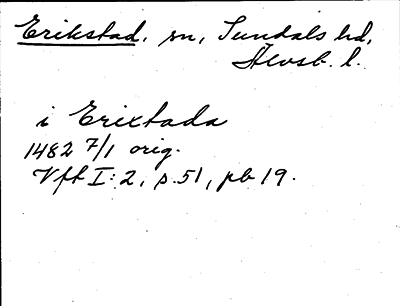 Erikstad, sn, Sundals hd,
Älvsb. l.
i Erixstada
1482 7/1 orig.
Vft I:2, s.51, pb 19.